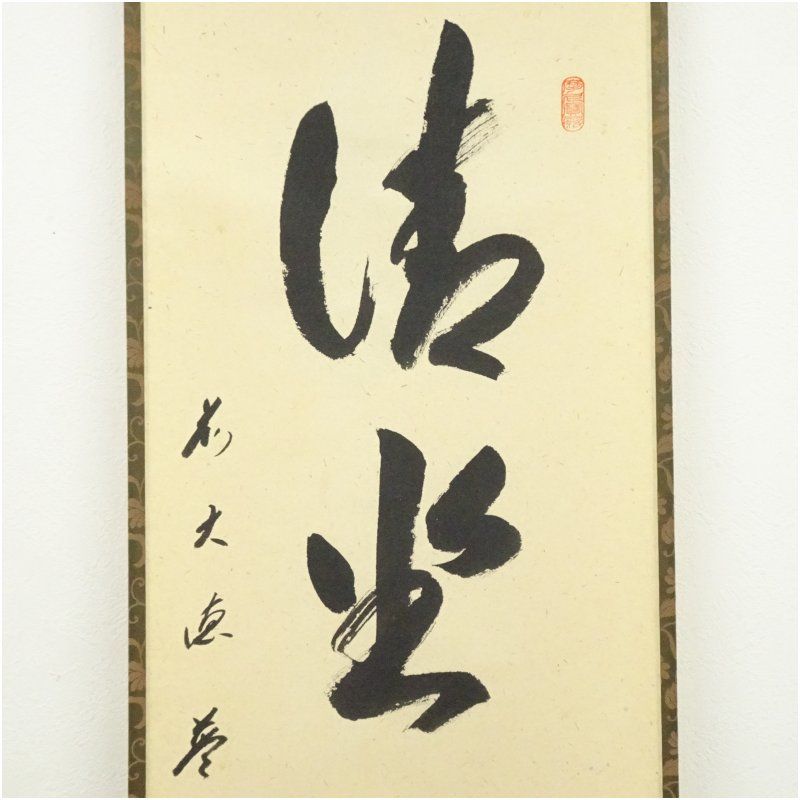 清坐
前大徳